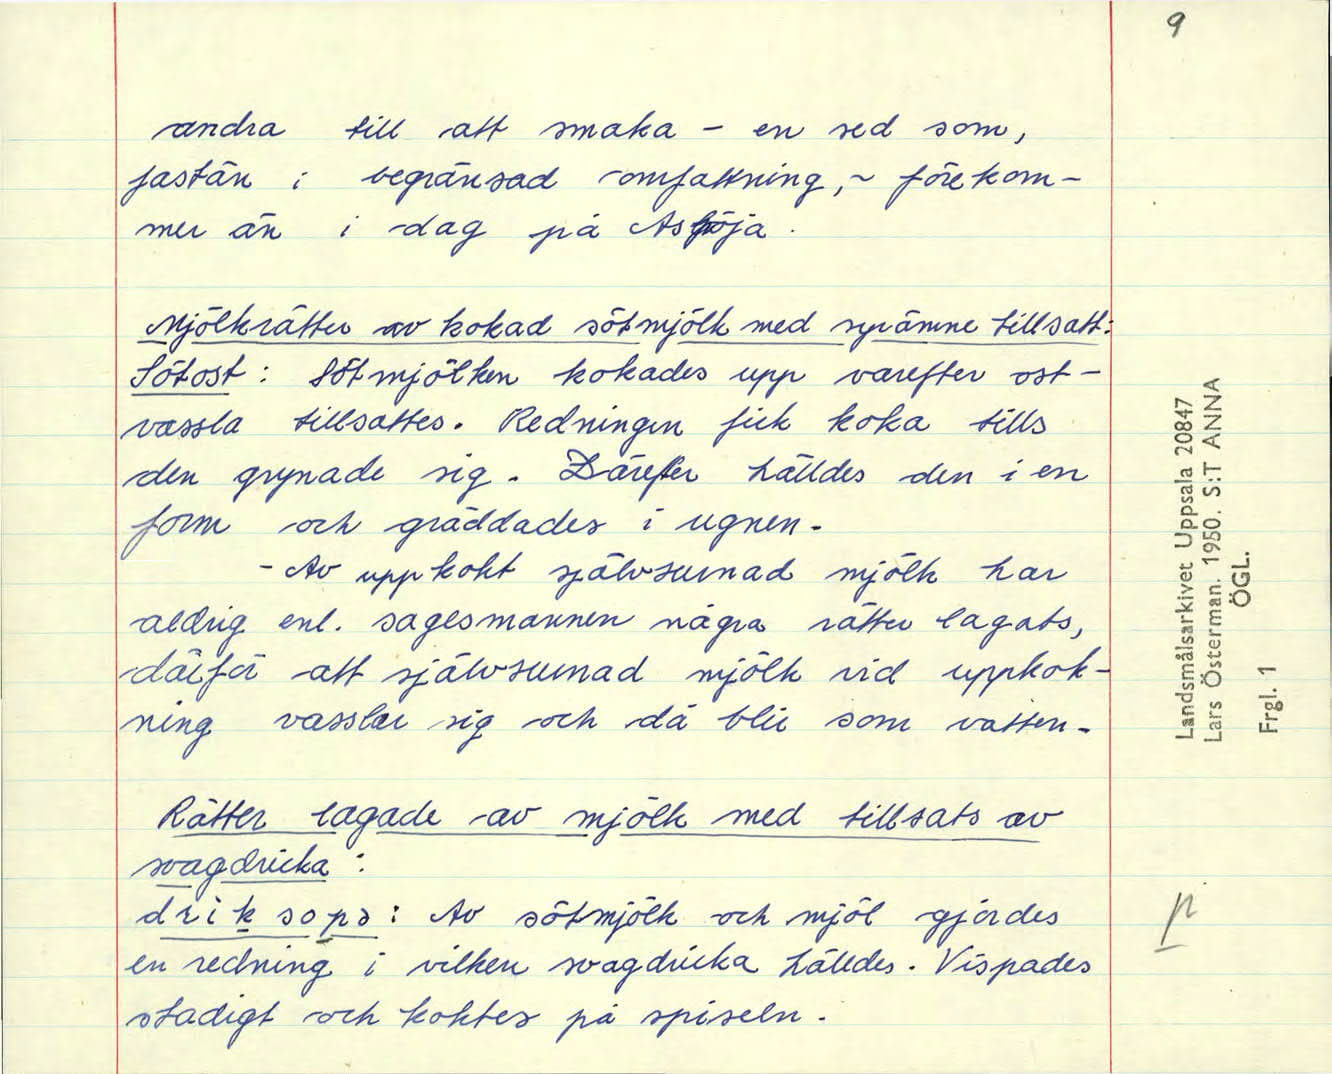 9
andra till att smaka – en sed som,
fastän i begränsad omfattning, ~ förekom-
mer än i dag på Asköja.
Mjölkrätter av kokad sötmjölk med syrämne tillsatt:
Sötost: Sötmjölken kokades upp varefter ost-
vassla tillsattes. Redningen fick koka tills
den grynade sig. Därefter hälldes den i en
form och gräddades i ugnen.
- Av uppkokt självsurnad mjölk har
aldrig enl. sagesmannen några rätter lagats,
därför att självsurnad mjölk vid uppkok-
ning vasslar sig och då blir som vatten.
Rätter lagade av mjölk med tillsats av
svagdricka:
drik sopa: Av sötmjölk och mjöl gjordes
en redning i vilken svagdricka hälldes. Vispades
stadigt och koktes på spiseln.
Landsmålsarkivet Uppsala 20847
Lars Österman. 1950. S:T ANNA
ÖGL.
Frgl. 1